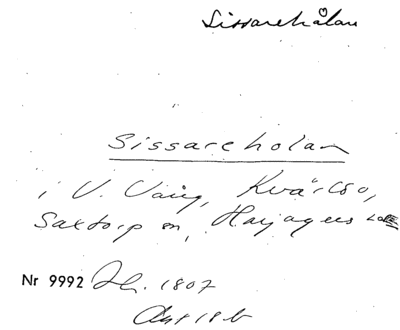 Sissarehålan
Sissareholan
i V. Väng, Kvärlöv,
Saxtorp sn, Harjagers
Nr 9992 1807
Akt 18 b